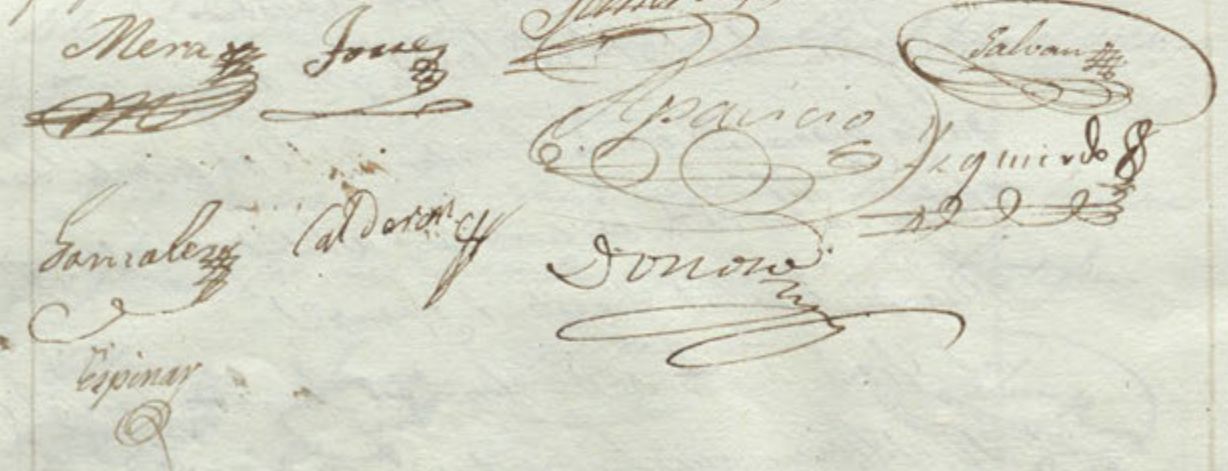 Mera Galvan
Aparicio
Yzquierdo
Gonzalez Calderon Donoso
Espinar